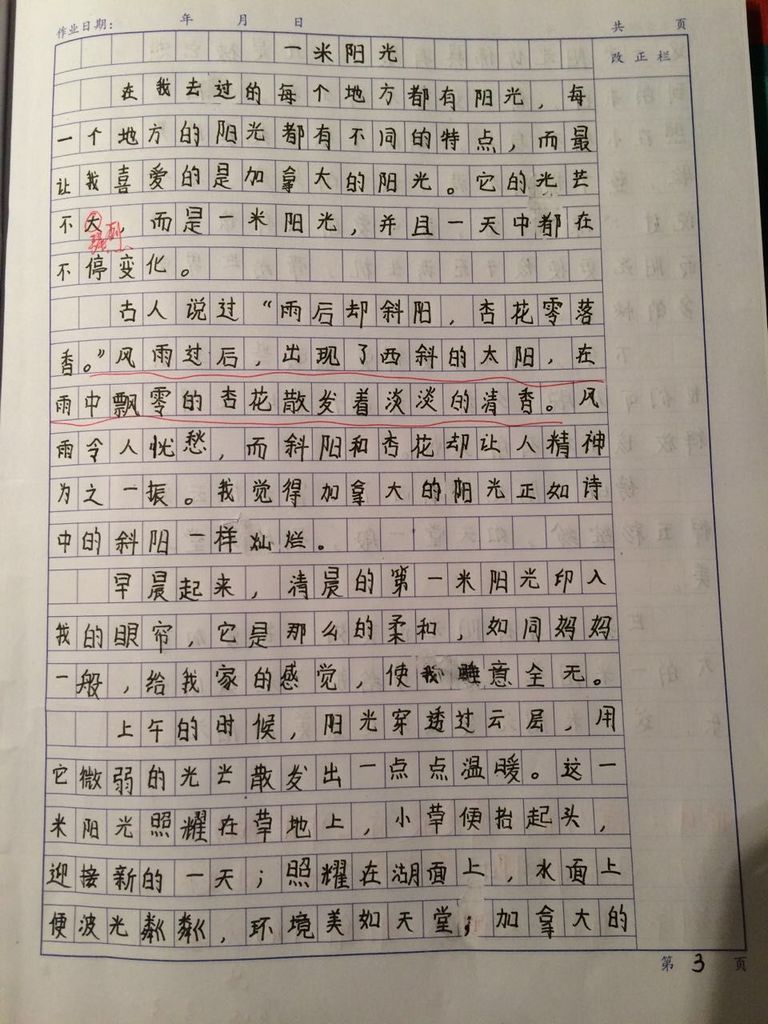 作业日期： 年 月 日 共 页
一米阳光 改正栏
在我去过的每个地方都有阳光，每
一个地方的阳光都有不同的特点，而最
让我喜爱的是加拿大的阳光。它的光芒
不大，而是一米阳光，并且一天中都在
强烈
不停变化。
古人说过“雨后却斜阳，杏花零落
香。”风雨过后，出现了西斜的太阳，在
雨中飘零的杏花散发着淡淡的清香。风
雨令人忧愁，而斜阳和杏花却让人精神
为之一振。我觉得加拿大的阳光正如诗
中的斜阳一样灿烂。
早晨起来，清晨的第一米阳光印入
我的眼帘，它是那么的柔和，如同妈妈
一般，给我家的感觉，使我睡意全无。
上午的时候，阳光穿透过云层，用
它微弱的光芒散发出一点点温暖。这一
米阳光照耀在草地上，小草便抬起头，
迎接新的一天；照耀在湖面上，水面上
便波光粼粼，环境美如天堂；加拿大的
第 3 页